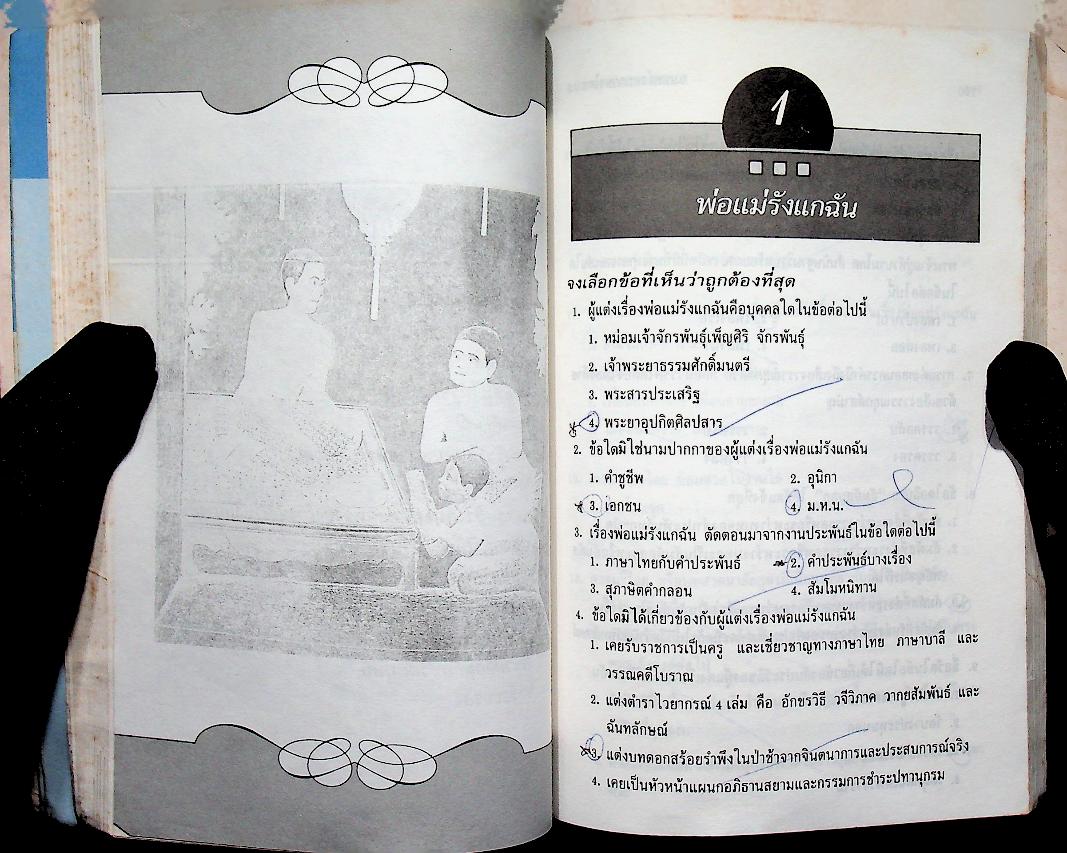 1
พ่อแม่รังแกฉัน
จงเลือกข้อที่เห็นว่าถูกต้องที่สุด
1. ผู้แต่งเรื่องพ่อแม่รังแกฉันคือบุคคลใดในข้อต่อไปนี้
1. หม่อมเจ้าจักรพันธุ์เพ็ญศิริ จักรพันธุ์
2. เจ้าพระยาธรรมศักดิ์มนตรี
3. พระสารประเสริฐ
4. พระยาอุปกิตศิลปสาร
2. ข้อใดมิใช่นามปากกาของผู้แต่งเรื่องพ่อแม่รังแกฉัน
1. คำชูชีพ 2. อุนิกา
3. เอกชน 4. ม.ห.น.
3. เรื่องพ่อแม่รังแกฉัน ตัดตอนมาจากงานประพันธ์ในข้อใดต่อไปนี้
1. ภาษาไทยกับคำประพันธ์ 2. คำประพันธ์บางเรื่อง
3. สุภาษิตคำกลอน 4. สัมโมหนิทาน
4. ข้อใดมิได้เกี่ยวข้องกับผู้แต่งเรื่องพ่อแม่รังแกฉัน
1. เคยรับราชการเป็นครู และเชี่ยวชาญทางภาษาไทย ภาษาบาลี และ
วรรณคดีโบราณ
2. แต่งตำราไวยากรณ์ 4 เล่ม คือ อักขรวิธี วจีวิภาค วากยสัมพันธ์ และ
ฉันทลักษณ์
3. แต่งบทดอกสร้อยรำพึงในป่าช้าจากจินตนาการและประสบการณ์จริง
4. เคยเป็นหัวหน้าแผนกอภิธานสยามและกรรมการชำระปทานุกรม